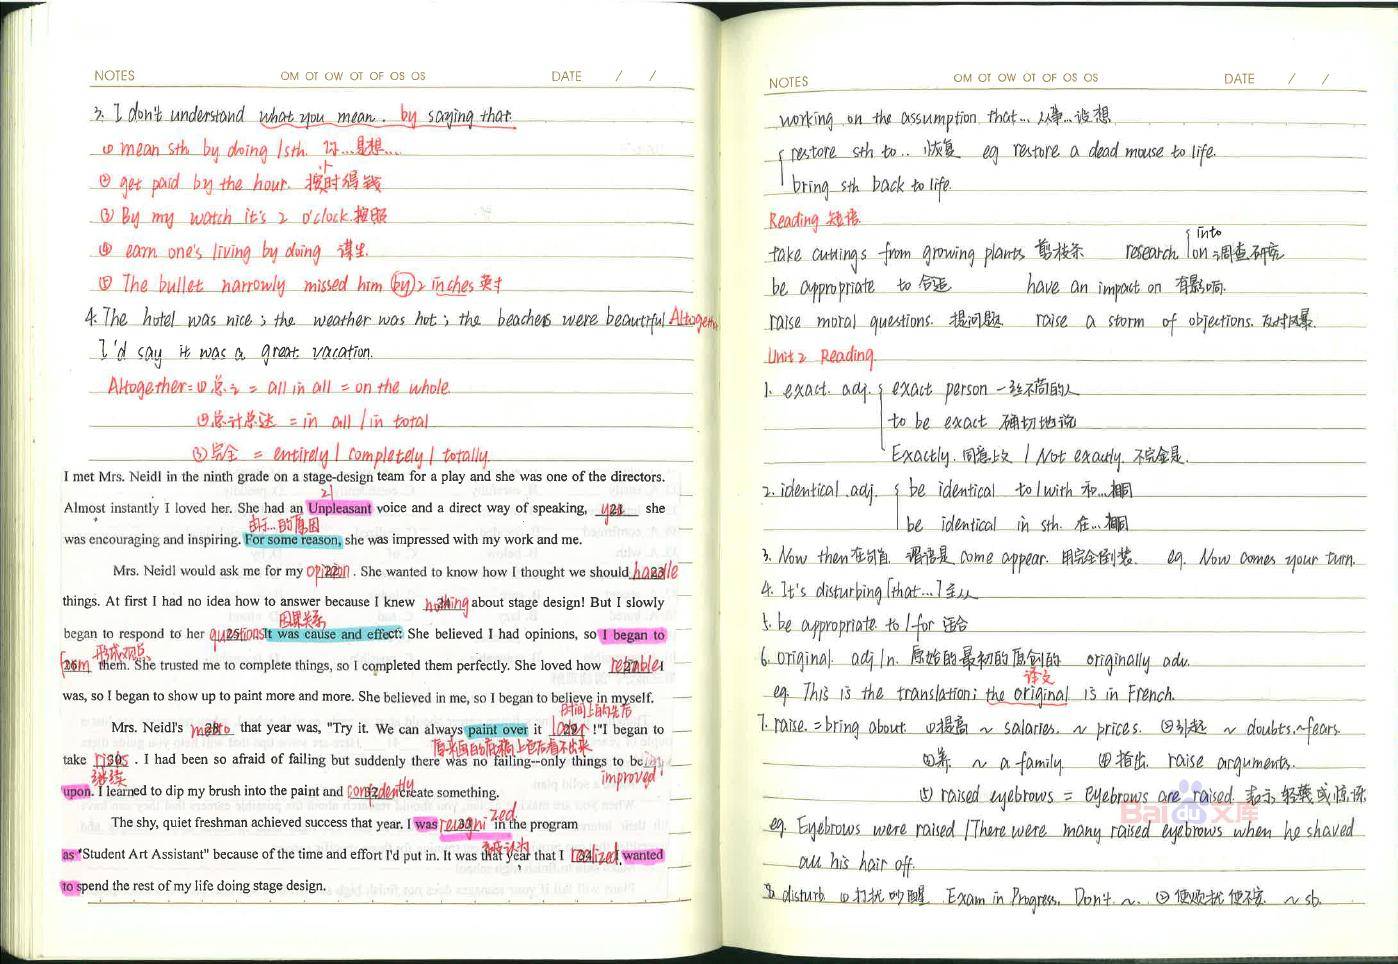 NOTES OM OT OW OT OF OS OS DATE / /
3. I don't understand what you mean. by saying that.
① mean sth by doing /sth. 你...是想....
② get paid by the hour. 按小时得钱
③ By my watch it's 2 o'clock.按照
④ earn one's living by doing 谋生.
⑤ The bullet narrowly missed him by 2 inches 英寸
4. The hotel was nice ; the weather was hot ; the beaches were beautiful Altogether
I'd say it was a great vacation.
Altogether: ①总之 = all in all = on the whole.
②总计总达 = in all / in total
③完全 = entirely / completely / totally
I met Mrs. Neidl in the ninth grade on a stage-design team for a play and she was one of the directors.
Almost instantly I loved her. She had an Unpleasant voice and a direct way of speaking, 21 yet she
由于...的原因
was encouraging and inspiring. For some reason, she was impressed with my work and me.
Mrs. Neidl would ask me for my 22 opinion. She wanted to know how I thought we should 23 handle
things. At first I had no idea how to answer because I knew 24 nothing about stage design! But I slowly
因果关系
began to respond to her 25 questions It was cause and effect: She believed I had opinions, so I began to
形成观点
26 form them. She trusted me to complete things, so I completed them perfectly. She loved how 27 reliable I
was, so I began to show up to paint more and more. She believed in me, so I began to believe in myself.
时间上的先后
Mrs. Neidl's 28 motto that year was, "Try it. We can always paint over it 29 later !"I began to
take 30 risks . I had been so afraid of failing but suddenly there was no failing--only things to be
improved
upon. I learned to dip my brush into the paint and 32 confidently create something.
The shy, quiet freshman achieved success that year. I was 33 recognized in the program
as "Student Art Assistant" because of the time and effort I'd put in. It was that year that I 34 realized I wanted
to spend the rest of my life doing stage design.
NOTES OM OT OW OT OF OS OS DATE / /
working on the assumption that... 从事...设想
restore sth to.. 恢复 eg restore a dead mouse to life.
bring sth back to life.
Reading 短语.
take cuttings from growing plants 剪枝条 research into / on 调查研究
be appropriate to 合适 have an impact on 有影响.
raise moral questions. 提问题 raise a storm of objections. 反对风暴.
Unit 2 Reading.
1. exact. adj. exact person 一丝不苟的人
to be exact 确切地说
Exactly. 同意上文 / Not exactly. 不完全是.
2. identical .adj. be identical to/with 和...相同
be identical in sth. 在...相同
3. Now then 在句首. 谓语是 come appear. 用完全倒装. eg. Now comes your turn.
4. It's disturbing [that...] 主从
5. be appropriate to /-for 适合
6. original. adj /n. 原始的最初的原创的 originally adv.
译文
eg. This is the translation; the original is in French.
7. raise. = bring about. ①提高 ~ salaries. ~ prices. ②引起 ~ doubts.~fears.
③养. ~ a family. ④ 指出. raise arguments.
⑤ raised eyebrows = eyebrows are raised. 表示轻蔑或惊讶.
Bai 文库
eg. Eyebrows were raised / There were many raised eyebrows when he shaved
all his hair off.
8. disturb. ①打扰吵醒. Exam in Progress. Don't. ~. ②使烦扰使不安. ~ sb.